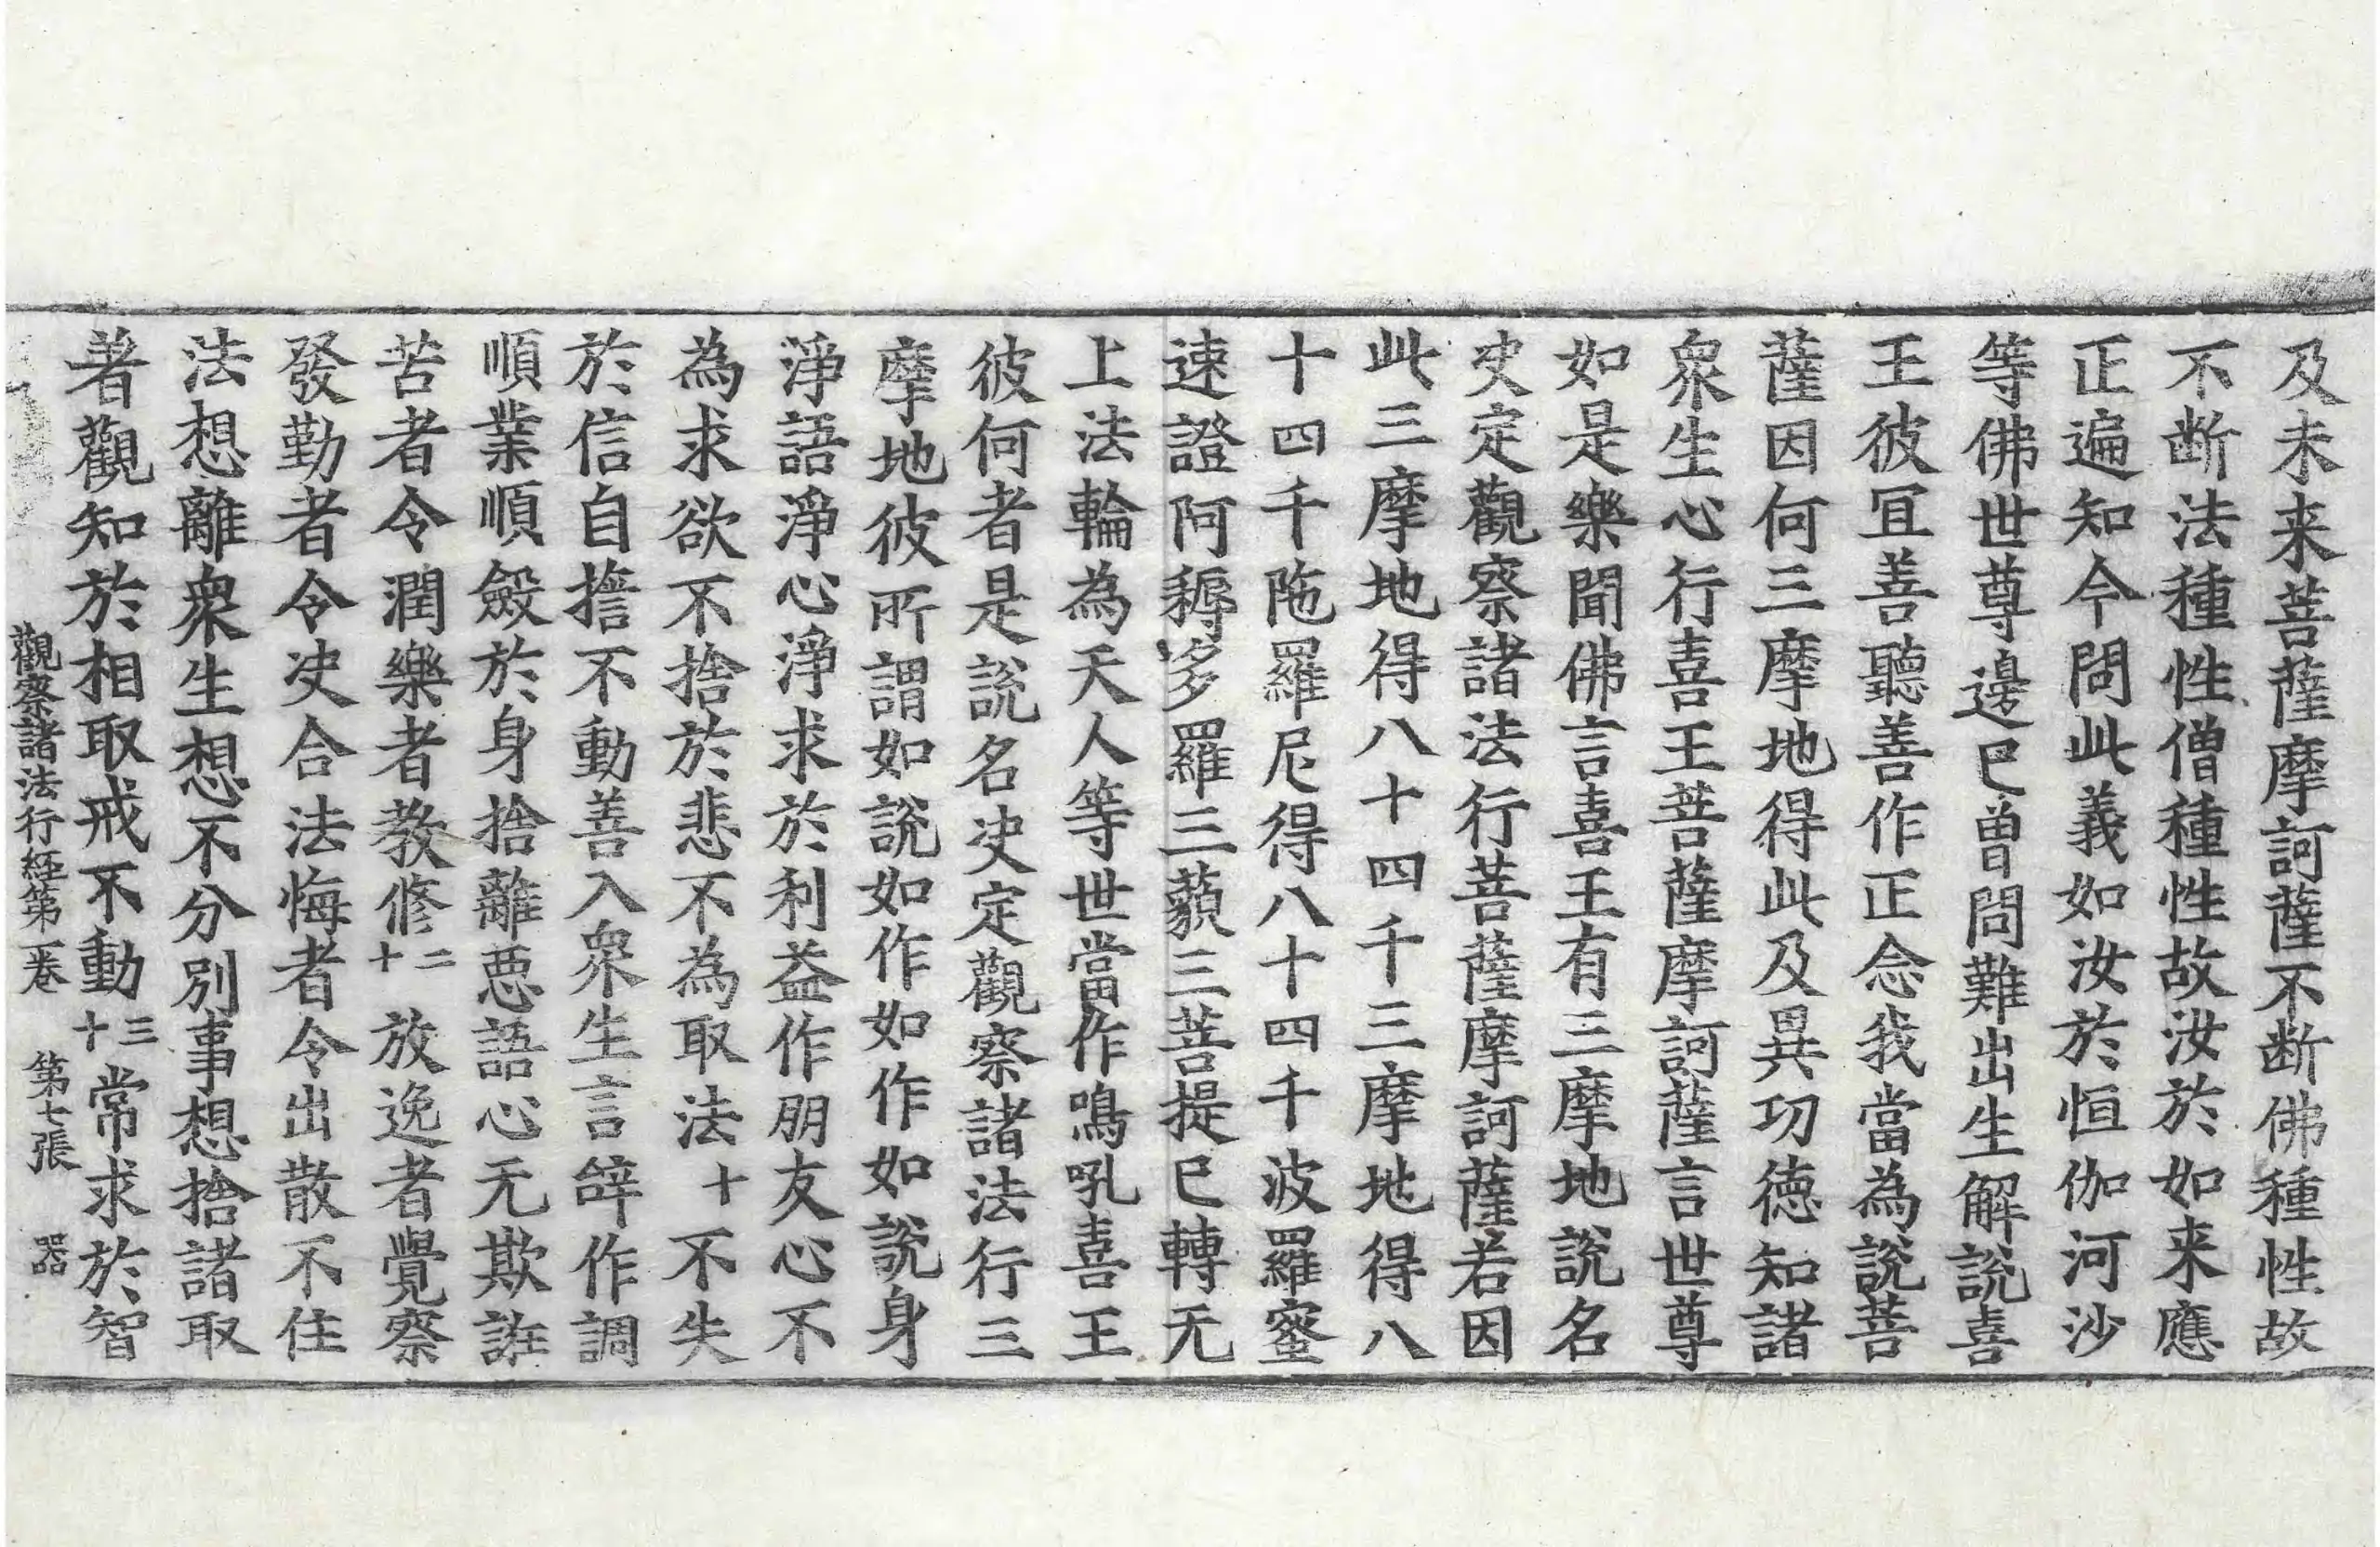 及未来菩薩摩訶薩不断佛種性故
不断法種性僧種性故汝於如来應
正遍知今問此義如汝於恒伽河沙
等佛世尊邊已曾問難出生解說喜
王彼冝善聽善作正念我當為說菩
薩因何三摩地得此及異功德知諸
衆生心行喜王菩薩摩訶薩言世尊
如是樂聞佛言喜王有三摩地說名
决定觀察諸法行菩薩摩訶薩若因
此三摩地得八十四千三摩地得八
十四千陁羅尼得八十四千波羅蜜
速證阿耨多羅三藐三菩提已轉无
上法輪為天人等世當作鳴吼喜王
彼何者是說名决定觀察諸法行三
摩地彼所謂如說如作如作如說身
淨語淨心淨求於利益作朋友心不
為求欲不捨於悲不為取法十不失
於信自擔不動善入衆生言辝作調
順業順斂於身捨離惡語心无欺誑
苦者令潤樂者教修二十放逸者覺察
發勤者令决合法悔者令出散不住
法想離衆生想不分別事想捨諸取
著觀知於相取戒不動三十常求於智
觀察諸法行經第一卷 第七張 器